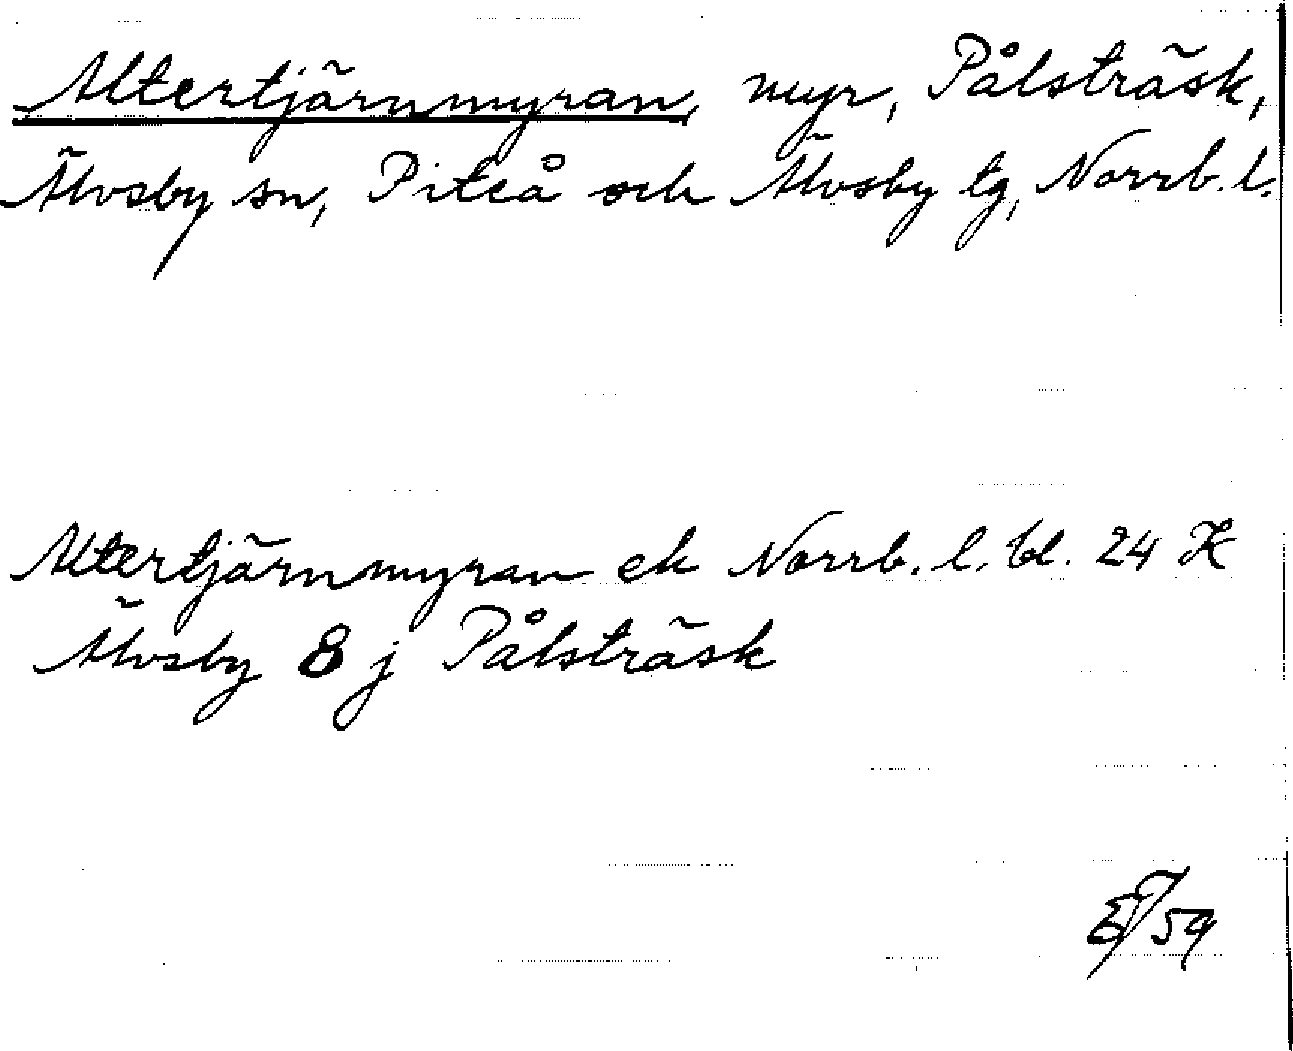 Altertjärnmyran, myr, Pålsträsk,
Älvsby sn, Piteå och Älvsby tg, Norrb. l.
Altertjärnmyran ek Norrb. l. bl. 24 K
Älvsby 8 j Pålsträsk
59